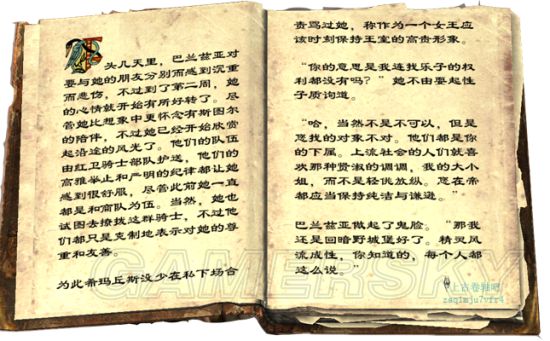 头几天里，巴兰兹亚对
要与她的朋友分别而感到沉重
而悲伤，不过到了第二周，她
的心情就开始有所好转了。尽
管她比想象中更怀念有斯图尔
的陪伴，不过她已经开始欣赏
起沿途的风光了。他们的队伍
由红卫骑士部队护送，他们的
高雅举止和严明的纪律都让她
感到很舒服，尽管此前她一直
都是和商队为伍。当然，她也
试图去撩拨这群骑士，不过他
们都只是克制地表示对她的尊
重和友善。
为此希玛丘斯没少在私下场合
责骂过她，称作为一个女王应
该时刻保持王室的高贵形象。
“你的意思是我连找乐子的权
利都没有吗？”她不由耍起性
子质询道。
“哈，当然不是不可以，但是
您找的对象不对。他们都是你
的下属。上流社会的人们就喜
欢那种贤淑的调调，我的大小
姐，而不是轻佻放纵。您在帝
都应当保持纯洁与谦逊。”
巴兰兹亚做起了鬼脸。“那我
还是回暗野城堡好了。精灵风
流成性，你知道的，每个人都
这么说。”
GAMERSKY
上古卷轴吧
zaq1mju7vfr4